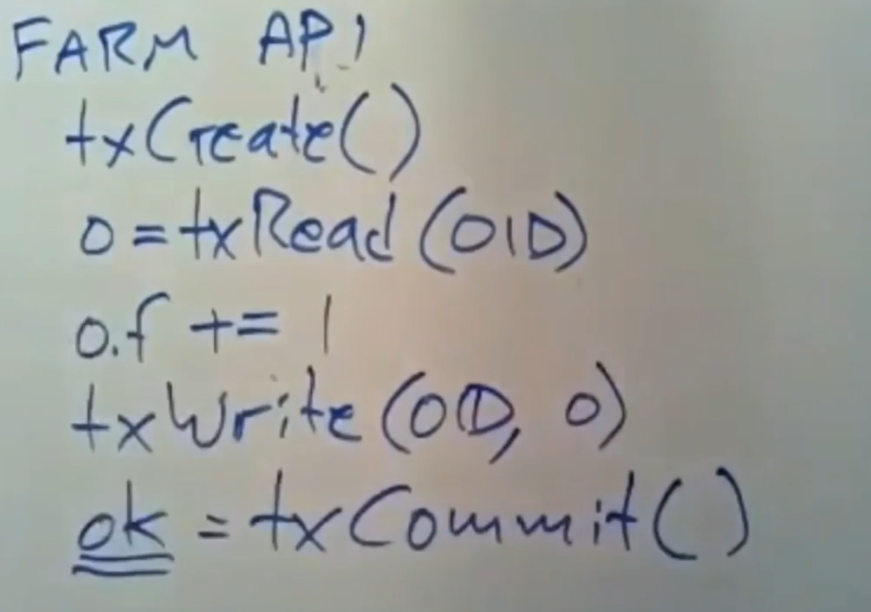 FARM API
txCreate()
o = txRead (OID)
o.f += 1
txWrite (OID, o)
ok = txCommit()